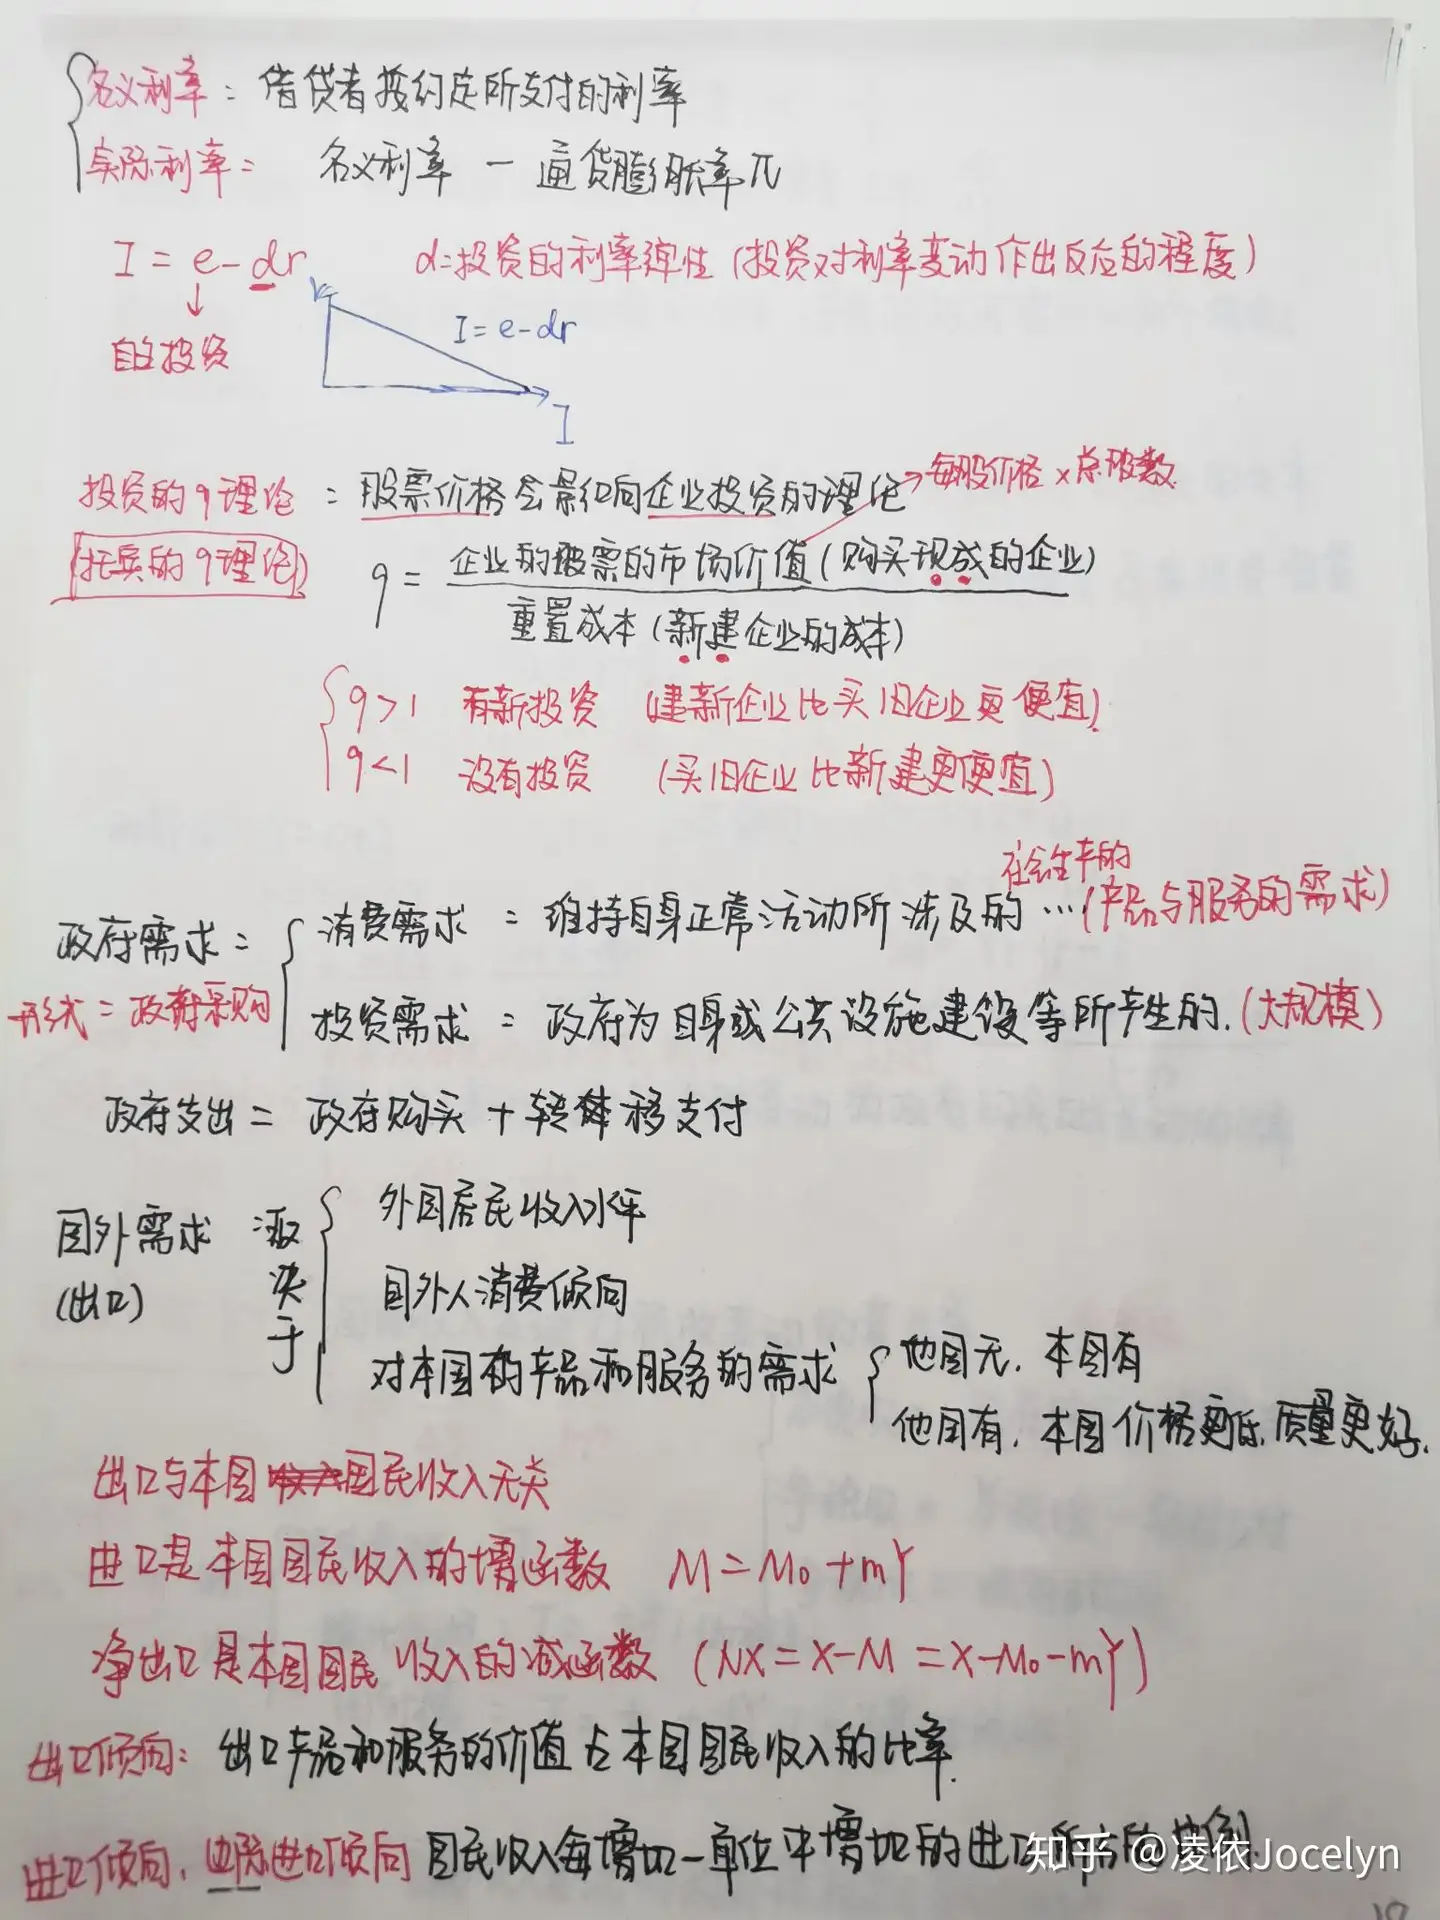 名义利率：借贷者按约定所支付的利率
实际利率= 名义利率 - 通货膨胀率π
I = e-dr d=投资的利率弹性(投资对利率变动作出反应的程度)
自主投资
r
I=e-dr
I
投资的q理论 = 股票价格会影响向企业投资的理论
每股价格×总股数
托宾的q理论
q = 企业的股票的市场价值(购买现成的企业)
重置成本(新建企业的成本)
q>1 有新投资 (建新企业比买旧企业更便宜)
q<1 没有投资 (买旧企业比新建更便宜)
政府需求=
消费需求 = 维持自身正常活动所涉及的…(产品与服务的需求)
形式=政府采购
投资需求 = 政府为自身或公共设施建设等所产生的.(大规模)
政府支出= 政府购买+转移支付
国外需求 取决于
(出口)
外国居民收入水平
国外人消费倾向
对本国的产品和服务的需求
他国无,本国有
他国有,本国价格更低,质量更好.
出口与本国国民收入无关
进口是本国国民收入的增函数 M=M₀+mY
净出口是本国国民收入的减函数 (NX=X-M=X-M₀-mY)
出口倾向: 出口产品和服务的价值占本国国民收入的比率.
进口倾向,边际进口倾向 国民收入每增加一单位中增加的进口所占的比例
知乎 @凌依Jocelyn